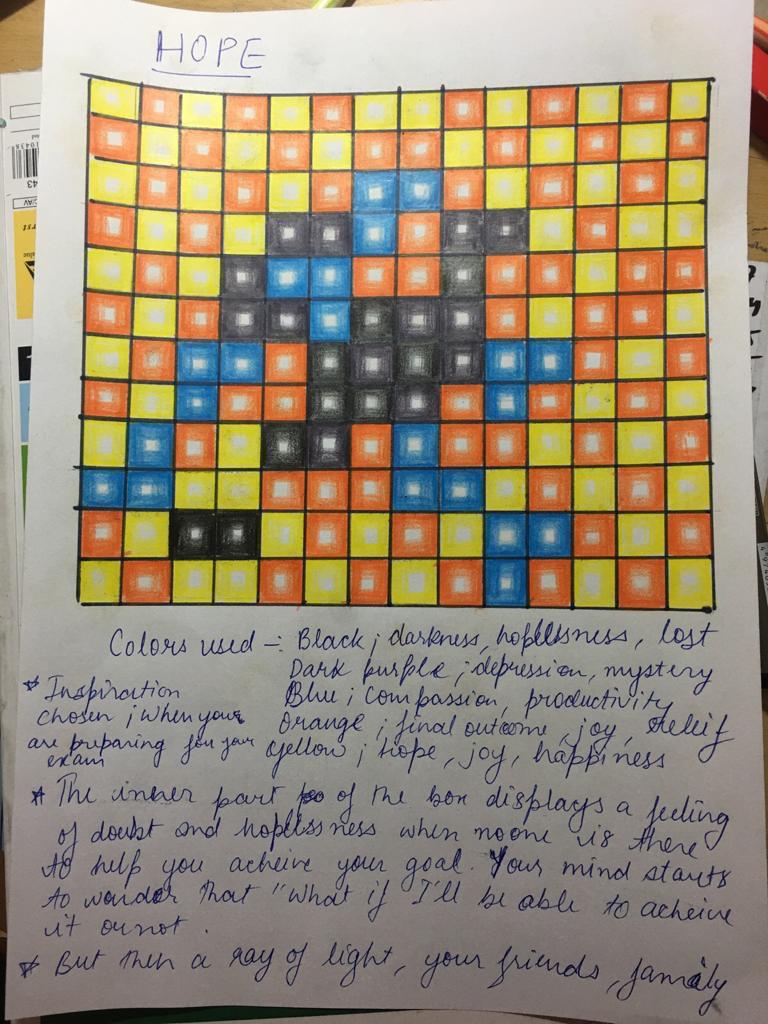 HOPE
Colors used -: Black ; darkness, hopllssness, lost
Dark purple ; depression, mystery
Blue ; compassion, productivity
Orange ; final outcome, joy, releif
Yellow ; Hope, joy, happiness
* Inspiration
chosen ; when your
are preparing for your
exam
* The inner part of the box displays a feeling
of doubt and hopllssness when noone is there
to help you acheive your goal. Your mind starts
to wander that "What if I'll be able to acheive
it or not.
* But then a ray of light, your friends, family